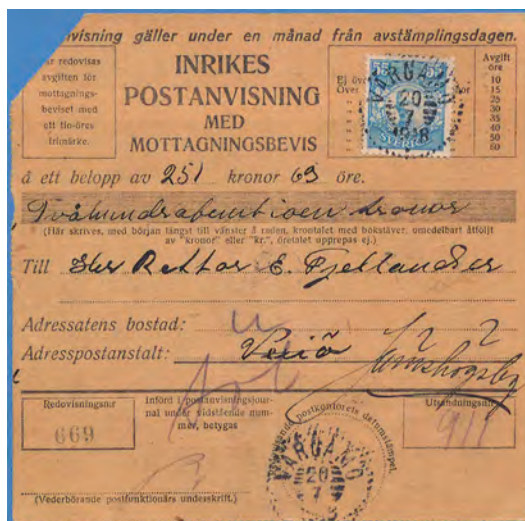 nvisning gäller under en månad från avstämplingsdagen.
är redovisas
avgiften för
mottagnings-
beviset med
ett tio-öres
frimärke.
INRIKES
POSTANVISNING
MED
MOTTAGNINGSBEVIS
Ej öv
Över
Avgift
öre
10
15
25
30
35
40
50
60
55
SVERIGE
VARGAMO
20
7
1918
å ett belopp av 251 kronor 63 öre.
kronor
(Här skrives, med början längst till vänster å raden, krontalet med bokstäver, omedelbart åtföljt
av "kronor" eller "kr.", öretalet upprepas ej.)
Till Herr Rektor E. Fjellander
Adressatens bostad:
Adresspostanstalt: Vexiö
Redovisningsnr
669
Införd i postanvisningsjour-
nal under vidstående num-
mer, betygas
postkontorets datumstämpel.
Utsändningsnr
VARGAMO
20
7
(Vederbörande postfunktionärs underskrift.)